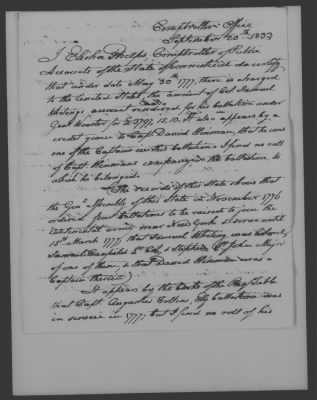 Comptrollers Office
September 20th 1833
I Elisha Phelps Comptroller of Public
Accounts of the State of Connecticut do certify
that under date May 30th 1777, there is charged
to the United States, the amount of Col Samuel
account rendered for his Battalion under
Genl Wooster for £ 2791. 12. 10. It also appears by a
credit given to Capt David Hinman, that he was
one of the Captains in this battalion. I find no roll
of Capt Hinmans company, or the battalion to
which he belonged.
The records of this State shew that
the Genl Assembly of this State in November 1776
ordered four battalions to be raised to join the
continental army near New York & serve until
15th March 1777 that Samuel was Colonel,
Samuel Canfield Lt Col, & Stephen St John Major
of one of them, & that David Hinman was a
Captain therein
It appears by the of the Pay Table
that Capt Augustus Collins, battalion was
in service in 1777; but I find no roll of his